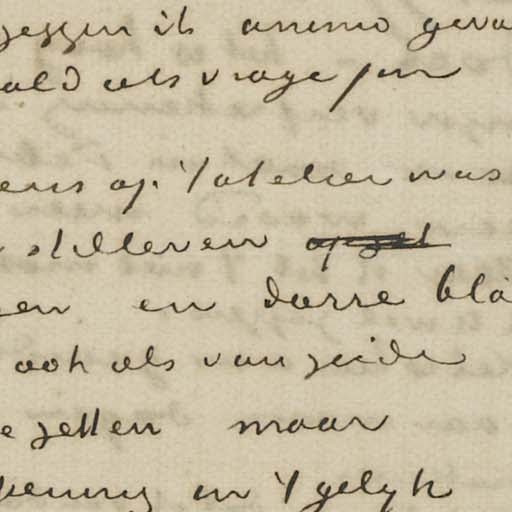 zeggen ik animo geva
ald als vroeger en
eens op 't atelier was
stilleven opzet
en en dorre bla
ook als van zeide
e zetten maar
en 't gelyk